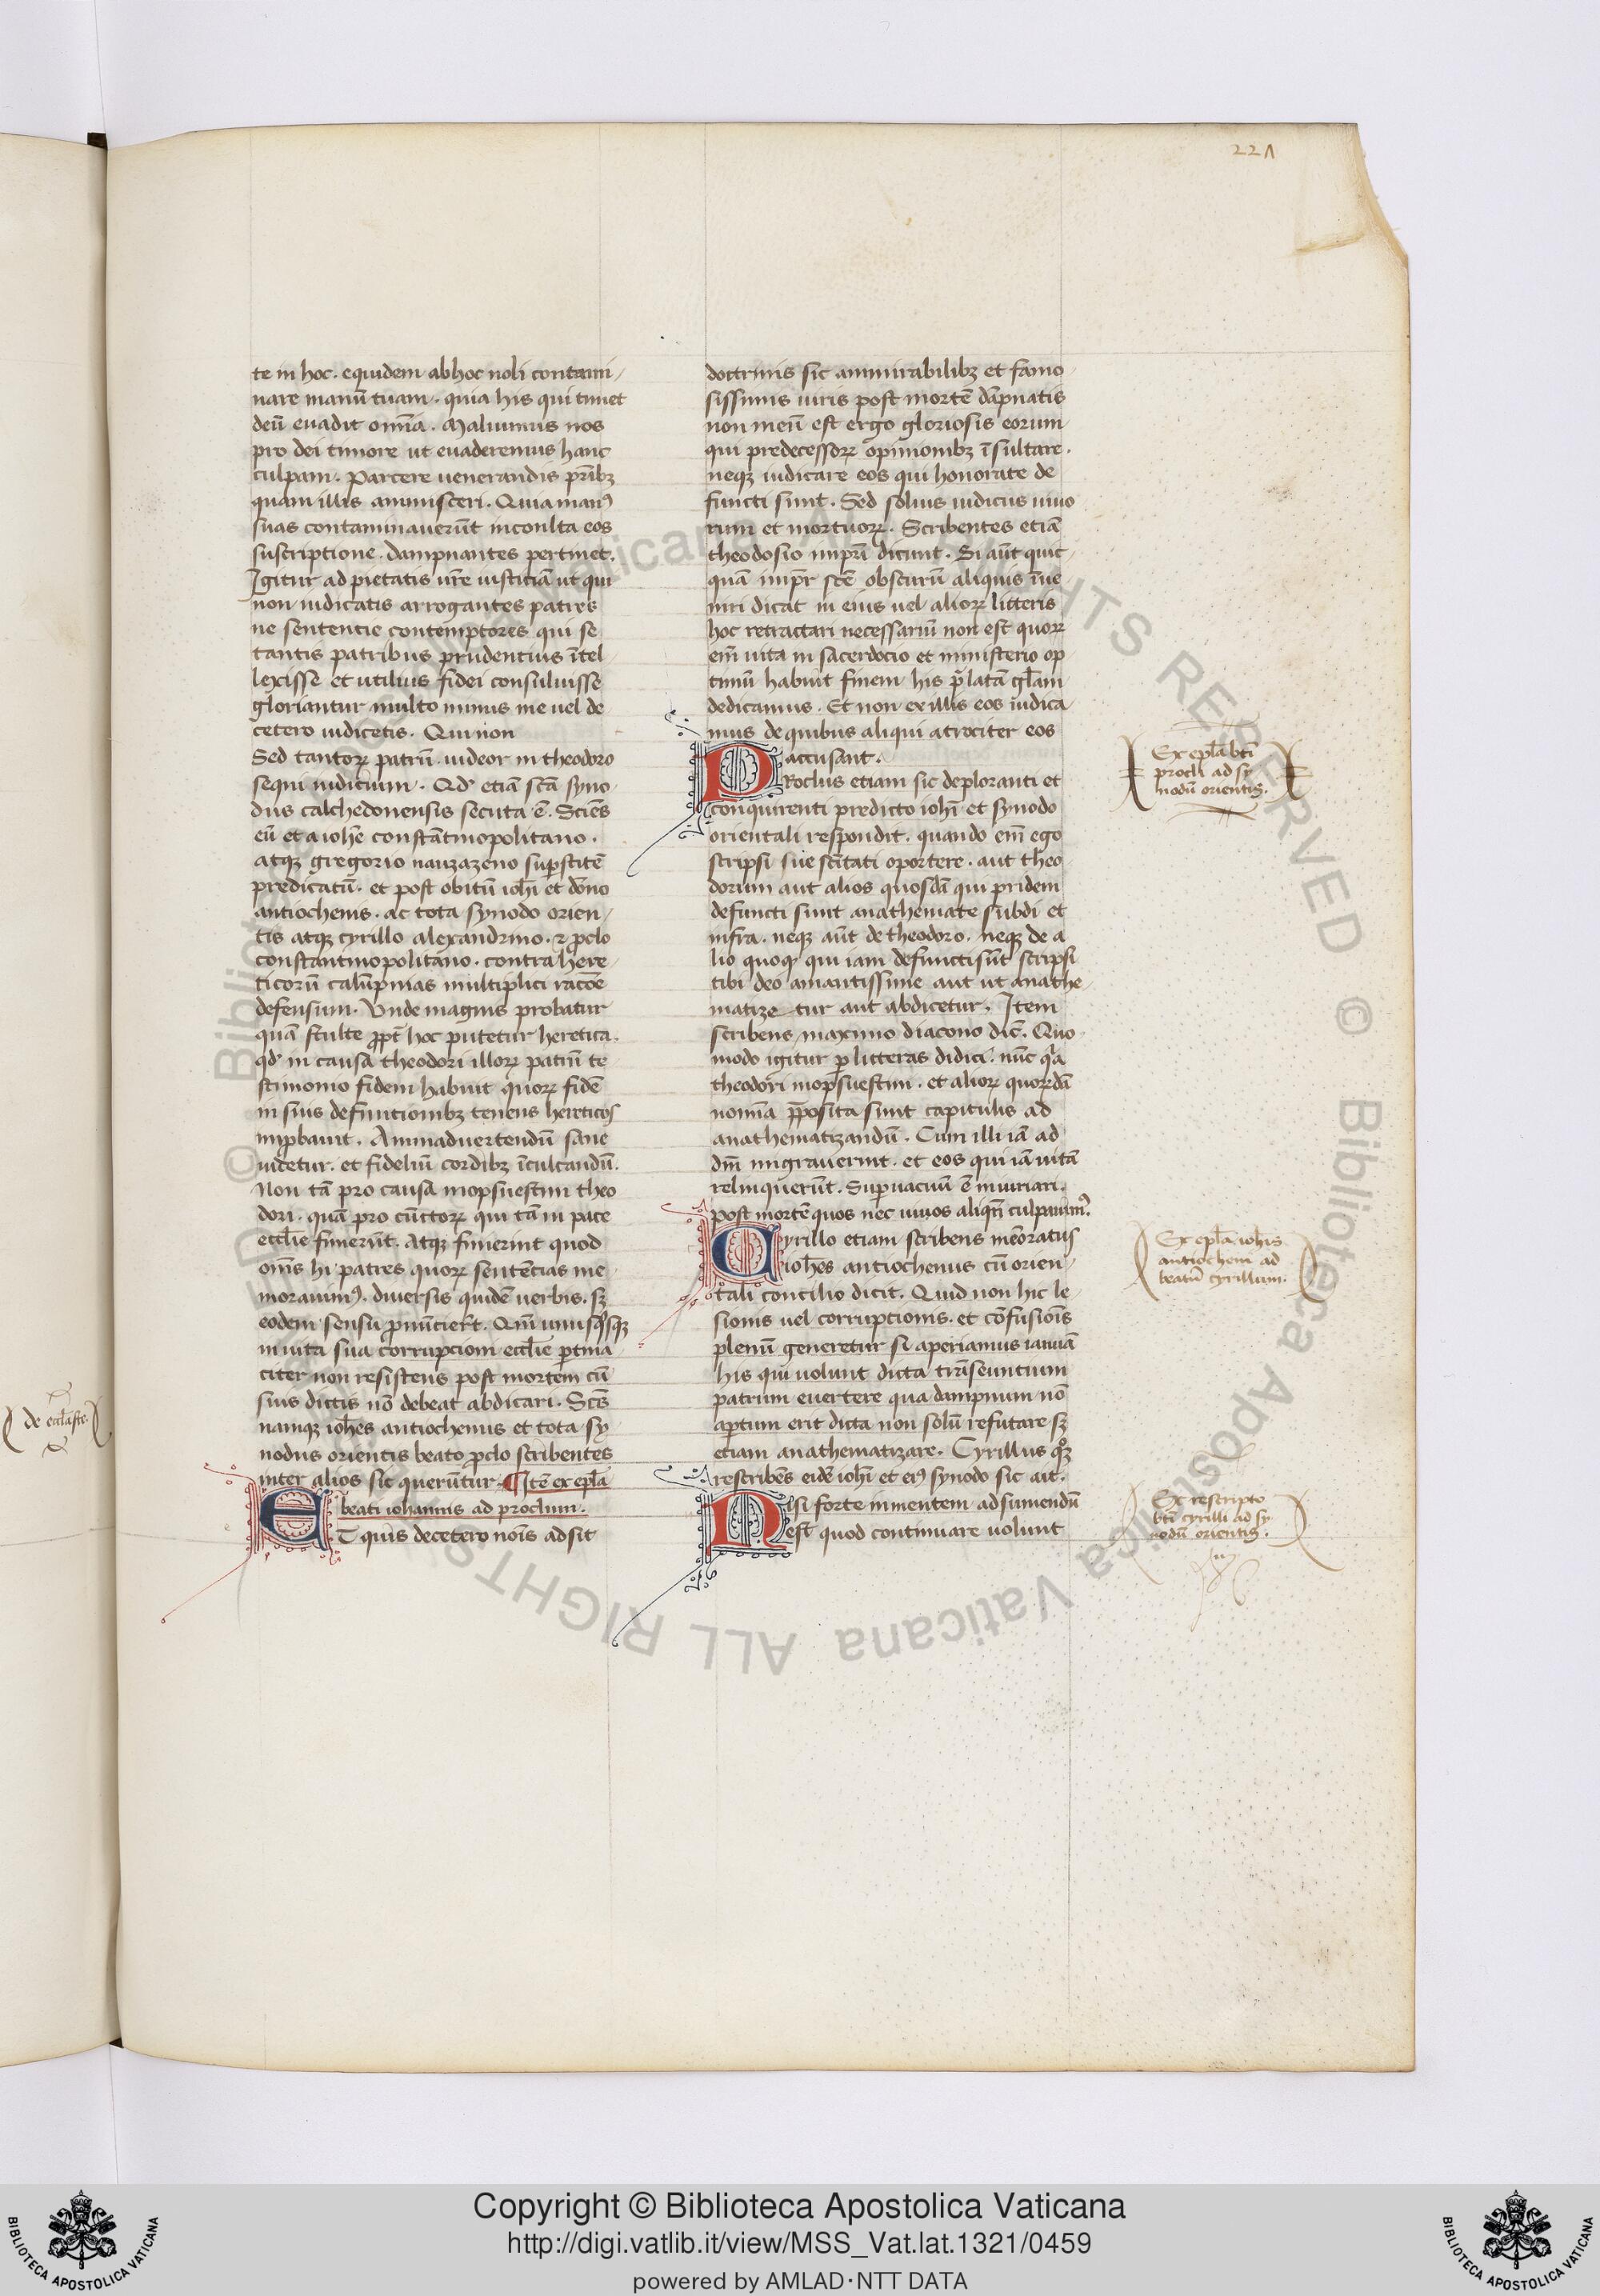 221
te in hoc. equidem ab hoc noli contami
nare manū tuam. quia his qui timet
deū euadit om̄ia. Maluimus nos
pro dei timore ut euaderemus hanc
culpam. Parcere uenerandis pr̄ibꝫ
quam illis ammisceri. Quia manꝰ
suas contaminauerūt inconlta eos
suscriptione. dampnantes pertinet.
Igitur ad pietatis ur̄e iusticiā ut qui
non iudicatis arrogantes patres
ne sententie contemptores qui se
tantis patribus prudentius ītel
lexisse et utilius fidei consuluisse
gloriantur multo minus me uel de
cetero iudicetis. Qui non
Sed tantoꝝ patrū. uideor in theodoro
sequi iudicium. Qd etiā sc̄a syno
dus calchedonensis secuta ē. Sciēs
eū et a ioh̄e constātinopolitano.
atqꝫ gregorio nanzazeno suꝑstitē
predicatū. et post obitū ioh̄i et dōno
antiochenis. ac tota synodo orien
tis atqꝫ cyrillo alexandrino. ⁊ ꝓclo
constantinopolitano. contra here
ticorū calūpnias multiplici racōe
defensum. Unde magnis probatur
quā stulte ꝓpt̄ hoc putetur heretica.
qd in causa theodori illoꝝ patrū te
stimonio fidem habuit quoꝝ fidē
in suis definitionibꝫ tenens hereticos
improbauit. Animaduertendū sane
uidetur. et fideliū cordibꝫ īculcandū.
Non tā pro causa mopsuestini theo
dori. quā pro cūctoꝝ qui tā in pace
eccl̄ie finierūt. Atqꝫ finierint quod
om̄s hi patres quoꝝ sentēcias me
morauimꝰ. diuersis quidē uerbis. sꝫ
eodem sensu ꝓnūcierūt. Qm̄ unusqͥsqꝫ
in uita sua corrupcioni eccl̄ie ꝑtina
citer non resistens post mortem cū
suis dictis nō debeat abdicari. Sc̄s
namqꝫ ioh̄es antiochenus et tota sy
nodus orientis beato ꝓclo scribentes
inter alios sic querūtur. ¶ Itē ex epl̄a
beati iohannis ad proclum.
ET quis decetero nōis adsit
doctrinis sic ammirabilibꝫ et famo
sissimis uiris post mortē dāpnatis
non meū est ergo gloriosis eorum
qui predecessoꝝ opinionibꝫ īsultare.
neqꝫ iudicare eos qui honorate de
functi sunt. Sed solius iudicis uiuo
rum et mortuoꝝ. Scribentes etiā
theodosio impr̄i dicunt. Si aūt quic
quā impr̄ sc̄e obscurū aliquis īue
niri dicat in eius uel alioꝝ litteris
hoc retractari necessariū non est quoꝝ
em̄ uita in sacerdocio et ministerio op
timū habuit finem his p̄latā gl̄am
dedicamus. Et non ex illis eos iudica
mus de quibus aliqui atrociter eos
accusant.
PRoclus etiam sic deploranti et
conquirenti predicto ioh̄i et synodo
orientali respondit. quando em̄ ego
scripsi sue sc̄itati oportere. aut theo
dorum aut alios quosdā qui pridem
defuncti sunt anathemate subdi et
infra. neqꝫ aūt de theodoro. neqꝫ de a
lio quoqꝫ qui iam defuncti sūt scripsi
tibi deo amantissime aut ut anathe
matize tur aut abdicetur. Item
scribens maximo diacono dic̄. Quo
modo igitur ꝑ litteras didici. nūc qͥa
theodori mopsuestini. et alioꝝ quorūdā
nom̄ia p̄posita sunt capitulis ad
anathematizandū. Cum illi iā ad
dn̄m migrauerint. et eos qui iā uitā
relinquerūt. Suꝑuacuū ē iniuriari.
post mortē quos nec uiuos aliqn̄ culpauimꝰ.
Cyrillo etiam scribens mēoratus
ioh̄es antiochenus cū orien
tali concilio dicit. Quid non hic le
sionis uel corrupcionis. et cōfusiōis
plenū generetur si aperiamus ianuā
his qui uolunt dicta trāseuntium
patrum euertere qua dampnum nō
aptum erit dicta non solū refutare sꝫ
etiam anathematizare. Cyrillus qͦꝫ
rescribēs eidē ioh̄i et eiꝰ synodo sic ait.
NIsi forte in mentem adsumendū
est quod continuare uolunt
Ex epl̄a bt̄i
procli ad sy
nodū orientis.
Ex epl̄a ioh̄is
antiocheni ad
beatū cyrillum.
Ex rescripto
bt̄i cyrilli ad sy
nodū orientis.
de eccl̄aste.
© Biblioteca Apostolica Vaticana ALL RIGHTS RESERVED
© Biblioteca Apostolica Vaticana ALL RIGHTS RESERVED
Copyright © Biblioteca Apostolica Vaticana
http://digi.vatlib.it/view/MSS_Vat.lat.1321/0459
powered by AMLAD·NTT DATA
BIBLIOTECA APOSTOLICA VATICANA
BIBLIOTECA APOSTOLICA VATICANA